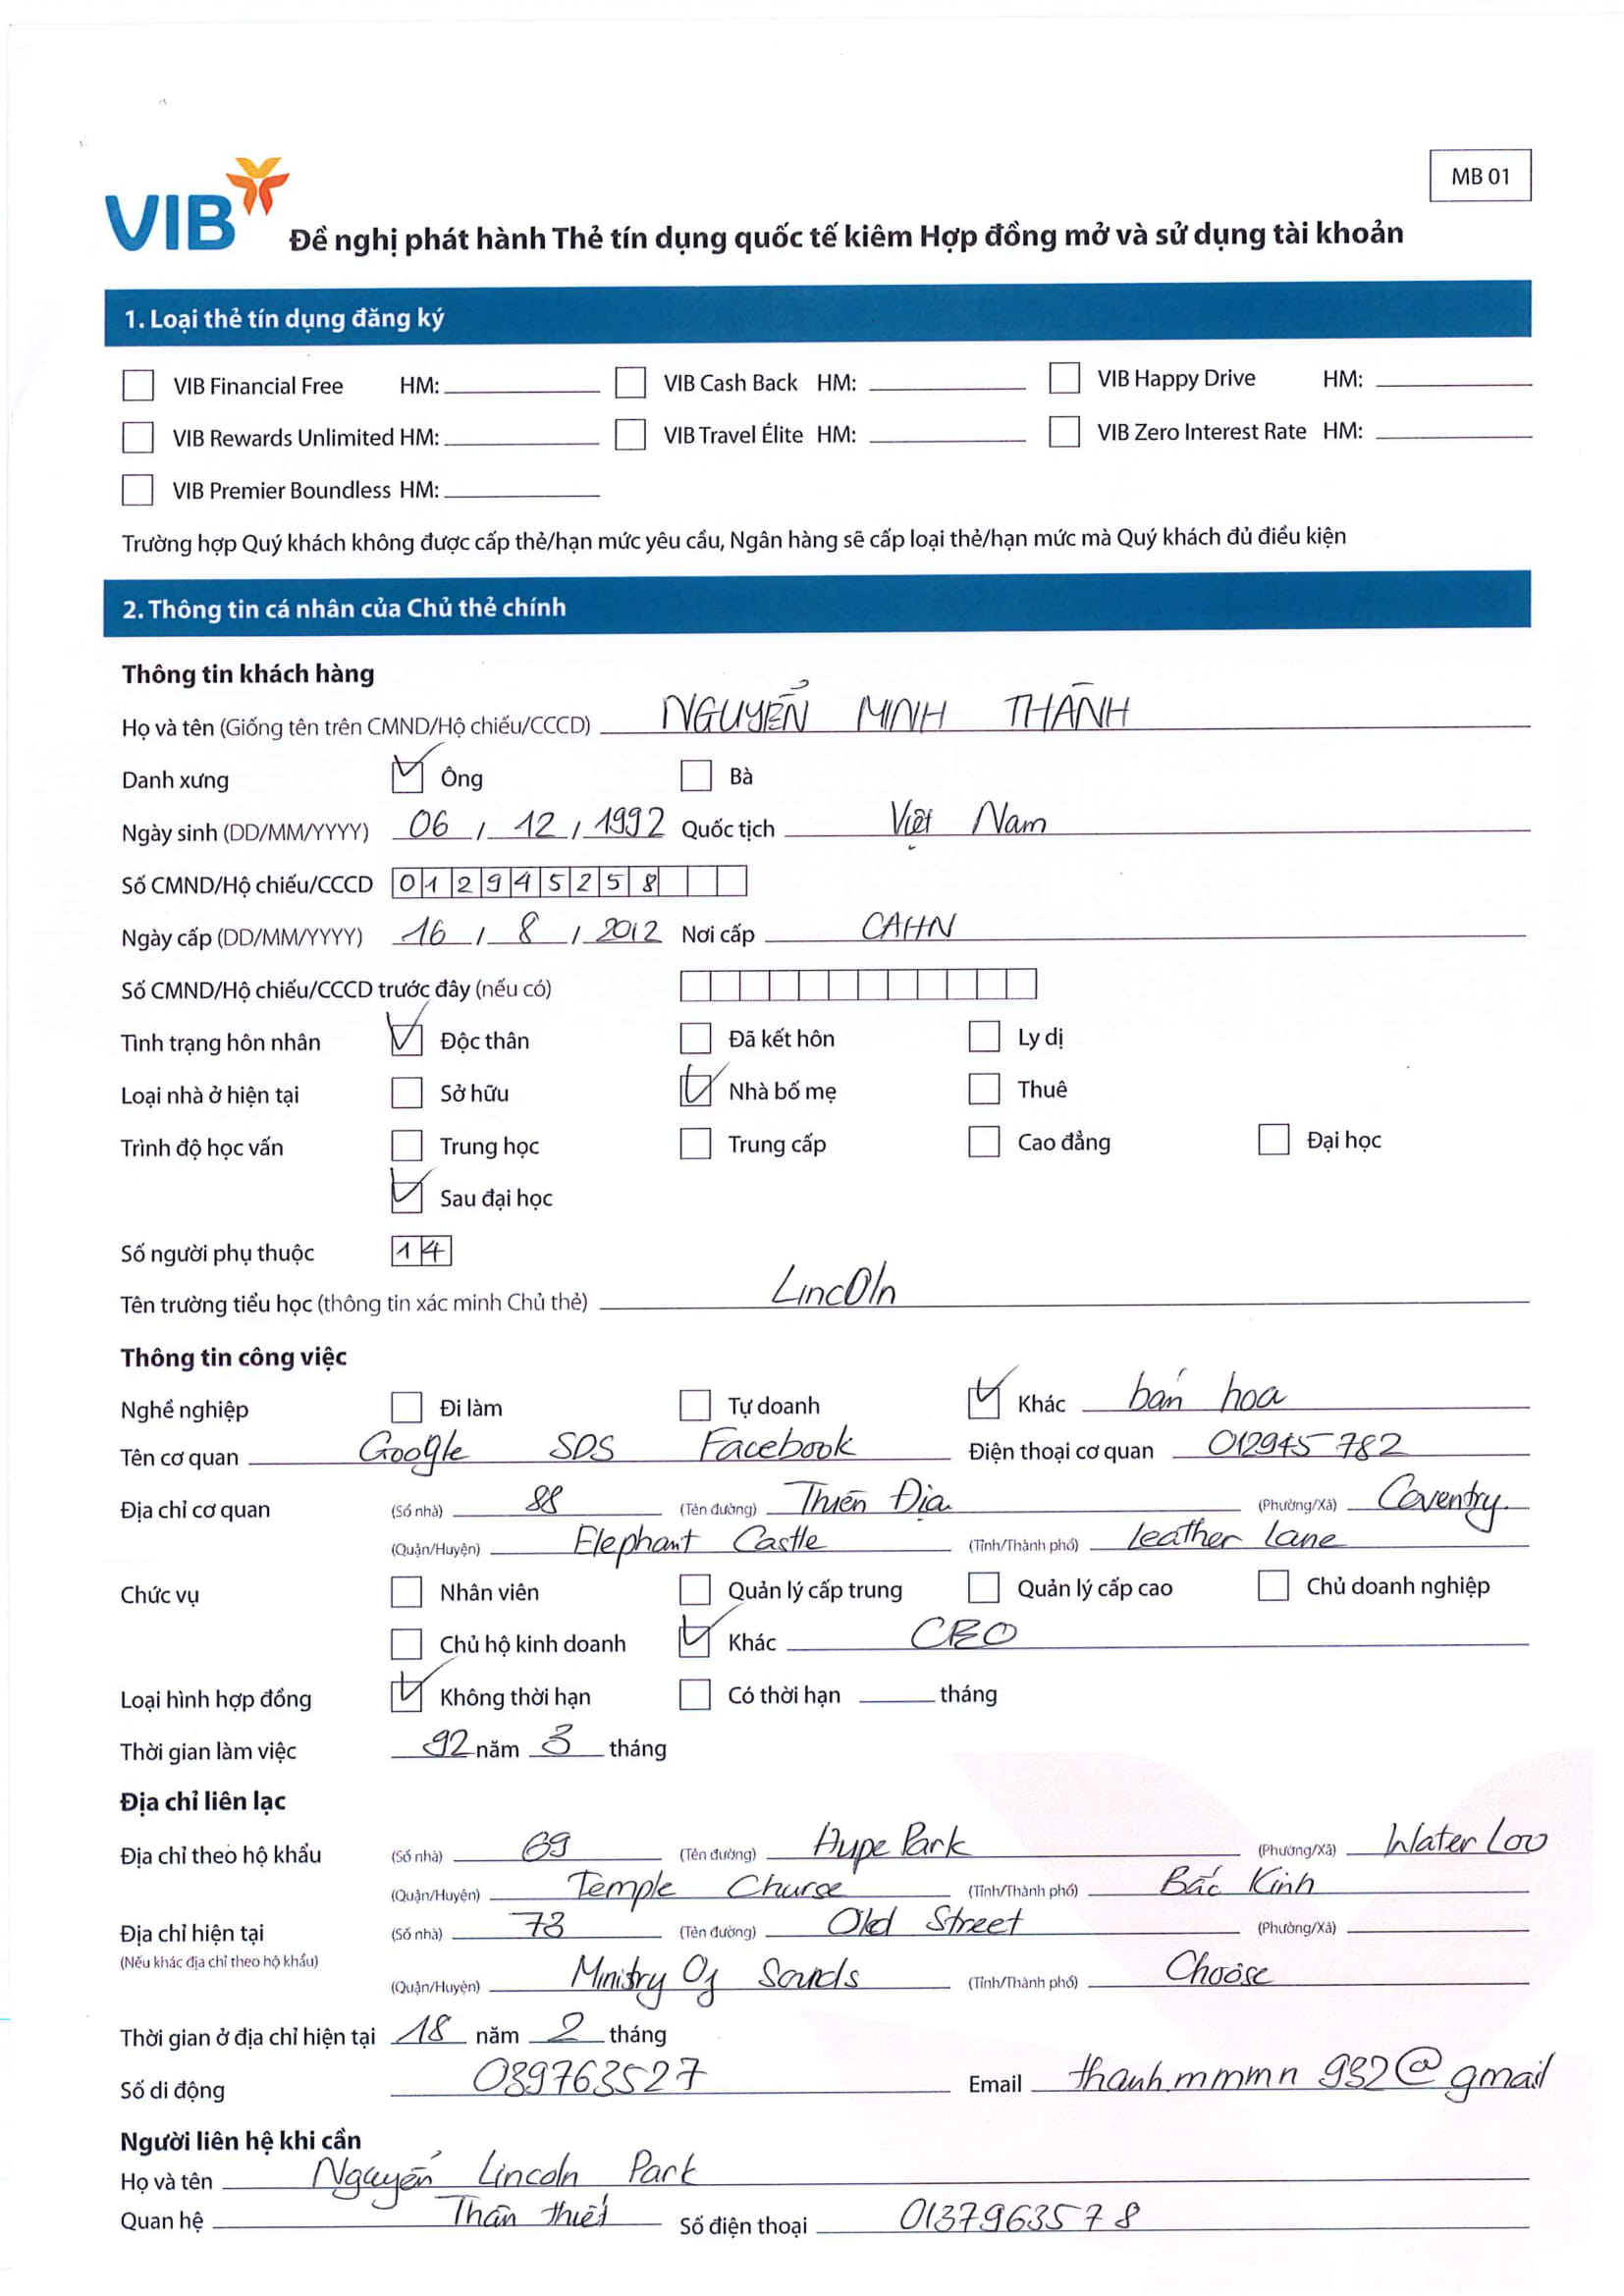 VIB
MB 01
Đề nghị phát hành Thẻ tín dụng quốc tế kiêm Hợp đồng mở và sử dụng tài khoản
1. Loại thẻ tín dụng đăng ký
VIB Financial Free HM: VIB Cash Back HM: VIB Happy Drive HM:
VIB Rewards Unlimited HM: VIB Travel Élite HM: VIB Zero Interest Rate HM:
VIB Premier Boundless HM:
Trường hợp Quý khách không được cấp thẻ/hạn mức yêu cầu, Ngân hàng sẽ cấp loại thẻ/hạn mức mà Quý khách đủ điều kiện
2. Thông tin cá nhân của Chủ thẻ chính
Thông tin khách hàng
Họ và tên (Giống tên trên CMND/Hộ chiếu/CCCD) NGUYỄN MINH THÀNH
Danh xưng Ông Bà
Ngày sinh (DD/MM/YYYY) 06 / 12 / 1992 Quốc tịch Việt Nam
Số CMND/Hộ chiếu/CCCD 012945258
Ngày cấp (DD/MM/YYYY) 16 / 8 / 2012 Nơi cấp CAHN
Số CMND/Hộ chiếu/CCCD trước đây (nếu có)
Tình trạng hôn nhân Độc thân Đã kết hôn Ly dị
Loại nhà ở hiện tại Sở hữu Nhà bố mẹ Thuê
Trình độ học vấn Trung học Trung cấp Cao đẳng Đại học
Sau đại học
Số người phụ thuộc 14
Tên trường tiểu học (thông tin xác minh Chủ thẻ) LincOln
Thông tin công việc
Nghề nghiệp Đi làm Tự doanh Khác bán hoa
Tên cơ quan Google SDS Facebook Điện thoại cơ quan 012945782
Địa chỉ cơ quan (Số nhà) 88 (Tên đường) Thiên Địa (Phường/Xã) Coventry
(Quận/Huyện) Elephant Castle (Tỉnh/Thành phố) leather lane
Chức vụ Nhân viên Quản lý cấp trung Quản lý cấp cao Chủ doanh nghiệp
Chủ hộ kinh doanh Khác CEO
Loại hình hợp đồng Không thời hạn Có thời hạn tháng
Thời gian làm việc 92 năm 3 tháng
Địa chỉ liên lạc
Địa chỉ theo hộ khẩu (Số nhà) 69 (Tên đường) Hype Park (Phường/Xã) Water Loo
(Quận/Huyện) Temple Churse (Tỉnh/Thành phố) Bắc Kinh
Địa chỉ hiện tại (Số nhà) 73 (Tên đường) Old Street (Phường/Xã)
(Nếu khác địa chỉ theo hộ khẩu)
(Quận/Huyện) Ministry Of Sounds (Tỉnh/Thành phố) Choose
Thời gian ở địa chỉ hiện tại 18 năm 2 tháng
Số di động 039763527 Email thanh.mmmn 932@gmail
Người liên hệ khi cần
Họ và tên Nguyễn Lincoln Park
Quan hệ Thân thiết Số điện thoại 0137963578